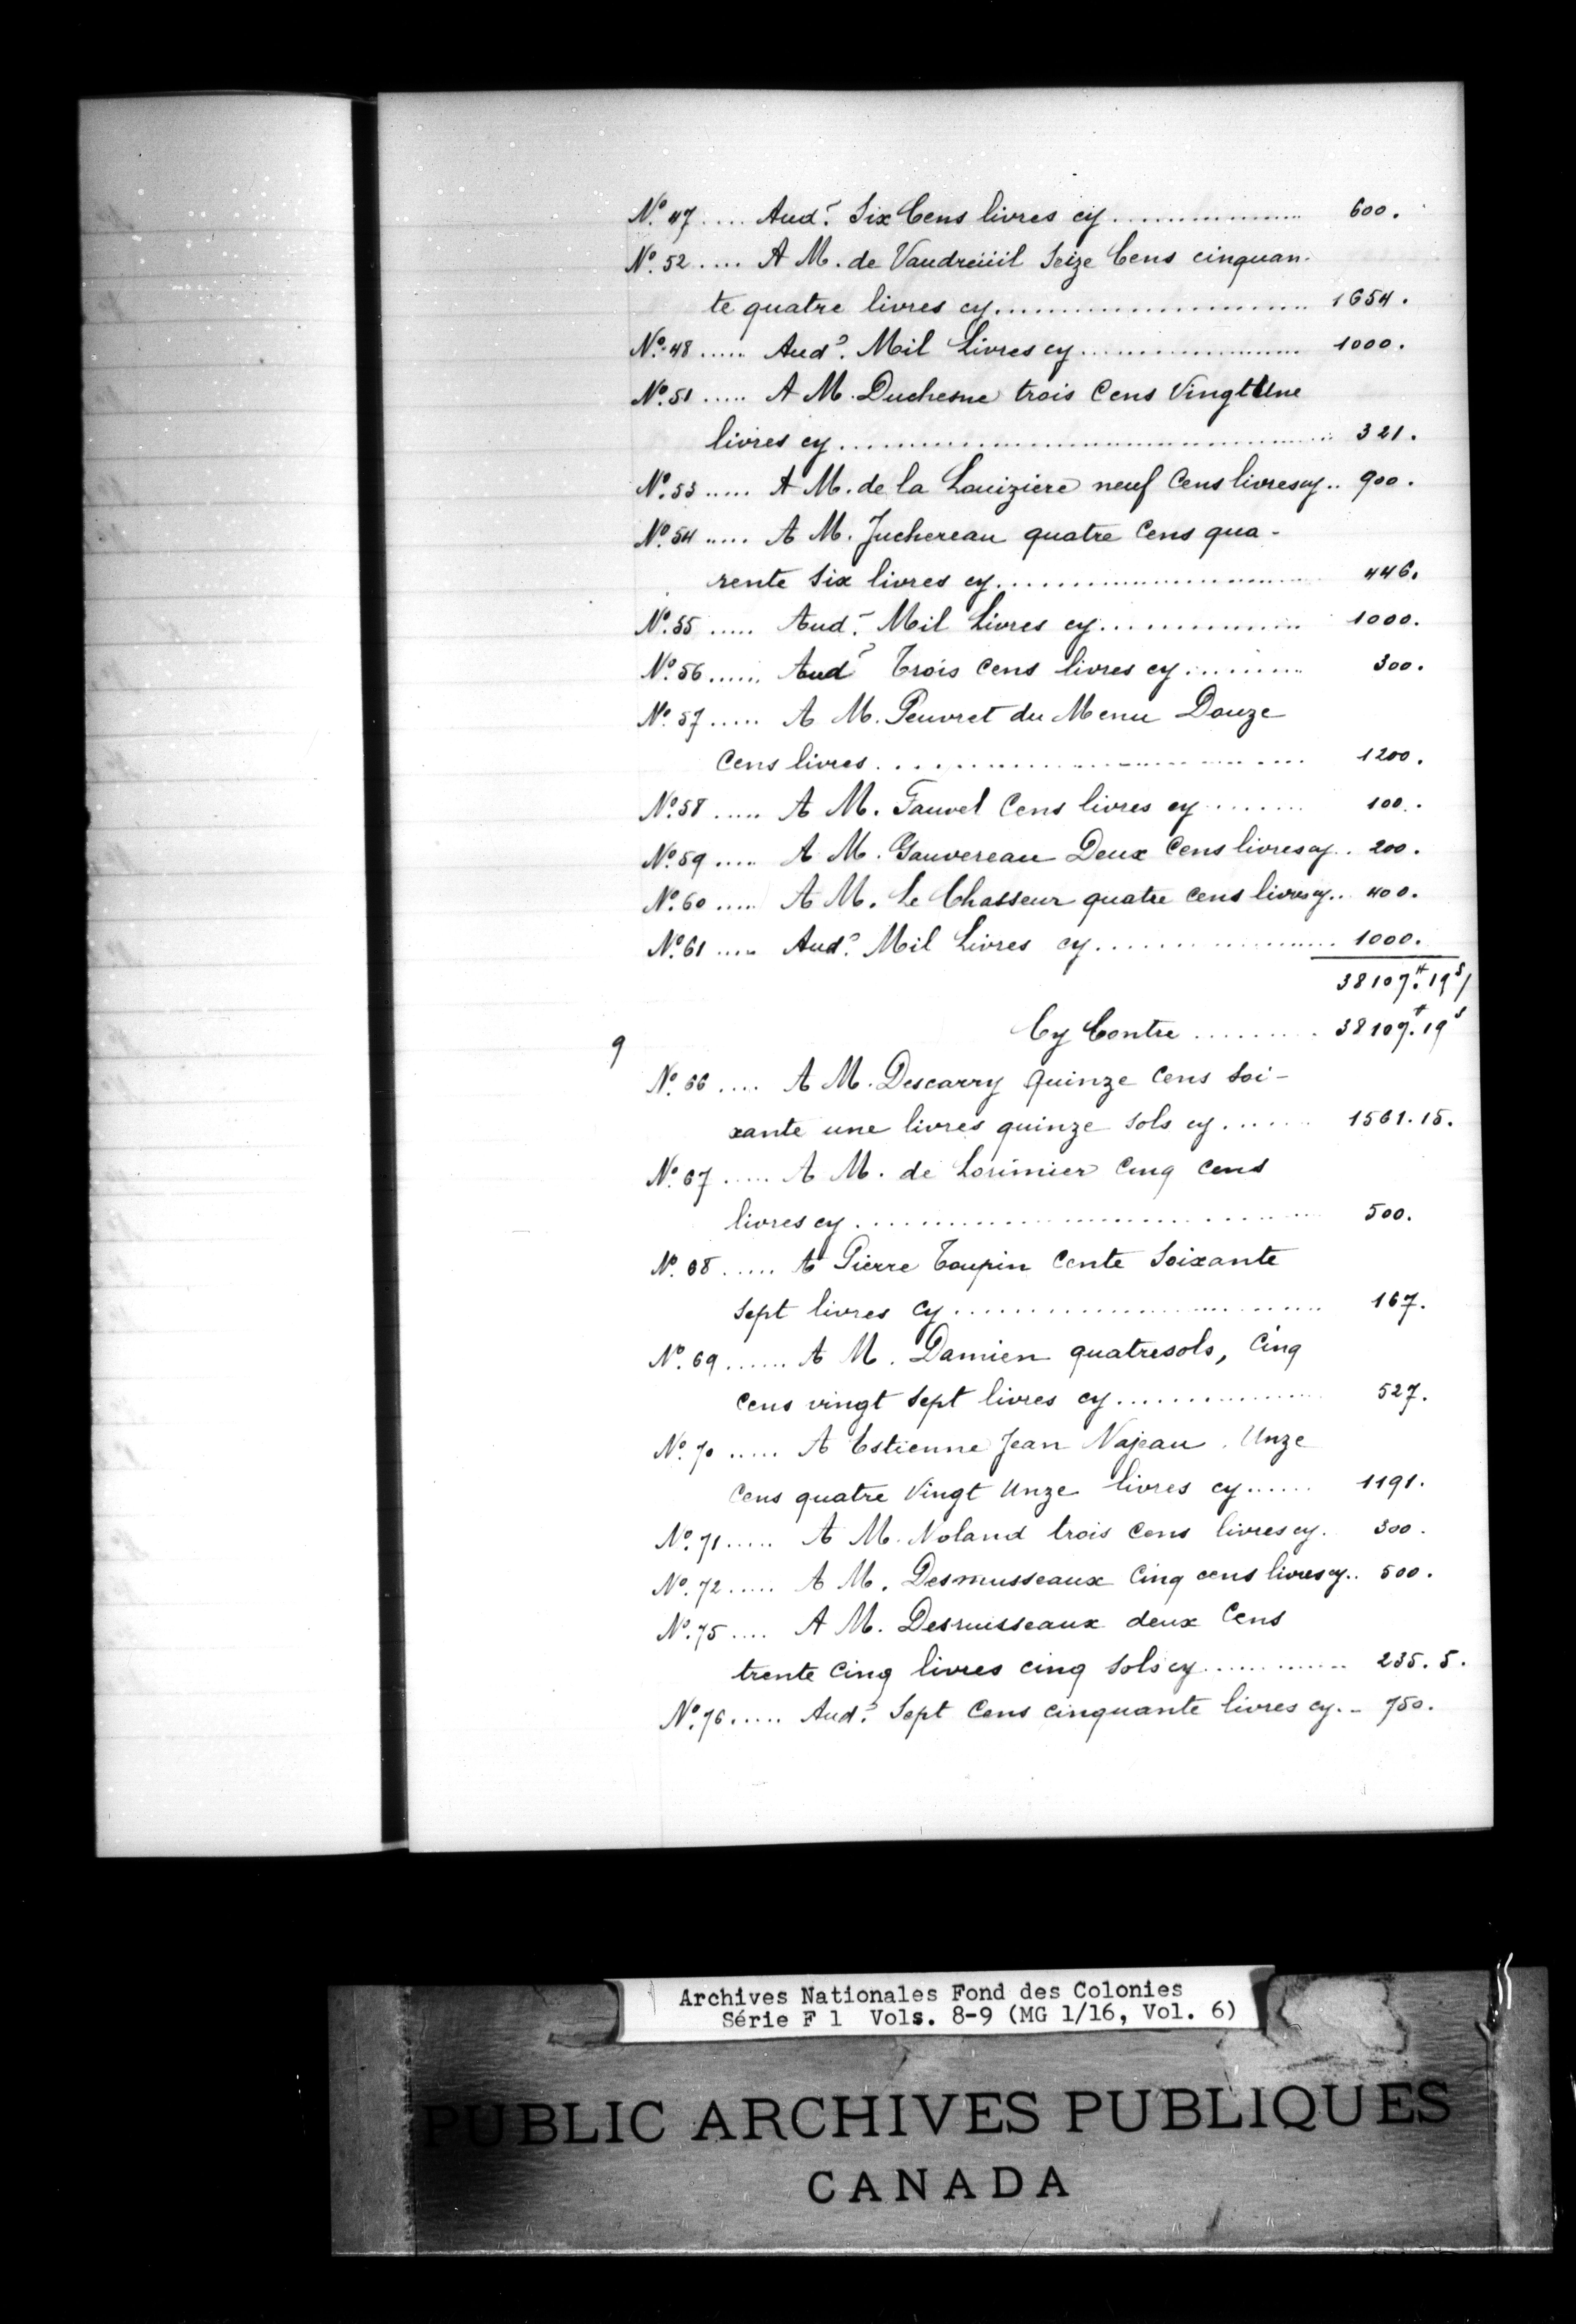 Nº 47 .... Audt Six Cens livres cy .................. 600.
Nº. 52 .... A M. de Vaudreüil Seize Cens cinquan-
te quatre livres cy ......................... 1654.
Nº. 48 ..... Audt. Mil Livres cy ..................... 1000.
Nº. 51 ..... A M. Duchesne trois Cens Vingt Une
livres cy ......................................... 321.
Nº. 53 ..... A M. de la Louiziere neuf Cens livres cy .. 900.
Nº. 54 ..... A M. Juchereau quatre Cens qua-
rente Six livres cy ......................... 446.
Nº. 55 ..... Audt. Mil Livres cy ................ 1000.
Nº. 56 ...... Audt Trois Cens livres cy ........... 300.
Nº. 57 ..... A M. Peuvret du Menu Douze
Cens livres ............................... 1200.
Nº. 58 ..... A M. Fauvel Cens livres cy ........ 100.
Nº. 59 ..... A M. Gauvereau Deux Cens livres cy .. 200.
Nº. 60 ..... A M. Le Chasseur quatre cens livres cy .. 400.
Nº. 61 .... Audt. Mil Livres cy ................... 1000.
38107.# 19s/
Cy Contre .......... 38107.# 19s
9
Nº. 66 .... A M. Descarry quinze Cens Soi-
xante une livres quinze sols cy ....... 1561. 15.
Nº. 67 ..... A M. de Lorimier Cinq Cens
livres cy .............................. 500.
Nº. 68 ..... A Pierre Toupin Cente Soixante
Sept livres cy ............................ 167.
Nº. 69 ...... A M. Damien quatresols, Cinq
Cens vingt Sept livres cy ................ 527.
Nº. 70 ..... A Estienne Jean Najeau. Unze
Cens quatre Vingt Unze livres cy ...... 1191.
Nº. 71 ..... A M. Noland trois Cens livres cy. 300.
Nº. 72 ..... A M. Desmusseaux Cinq cens livres cy .. 500.
Nº. 75 .... A M. Desruisseaux deux Cens
trente Cinq livres cinq Sols cy ............. 235. 5.
Nº. 76 ..... Audt. Sept Cens cinquante livres cy. - 750.
Archives Nationales Fond des Colonies
Série F 1 Vols. 8-9 (MG 1/16, Vol. 6)
PUBLIC ARCHIVES PUBLIQUES
CANADA